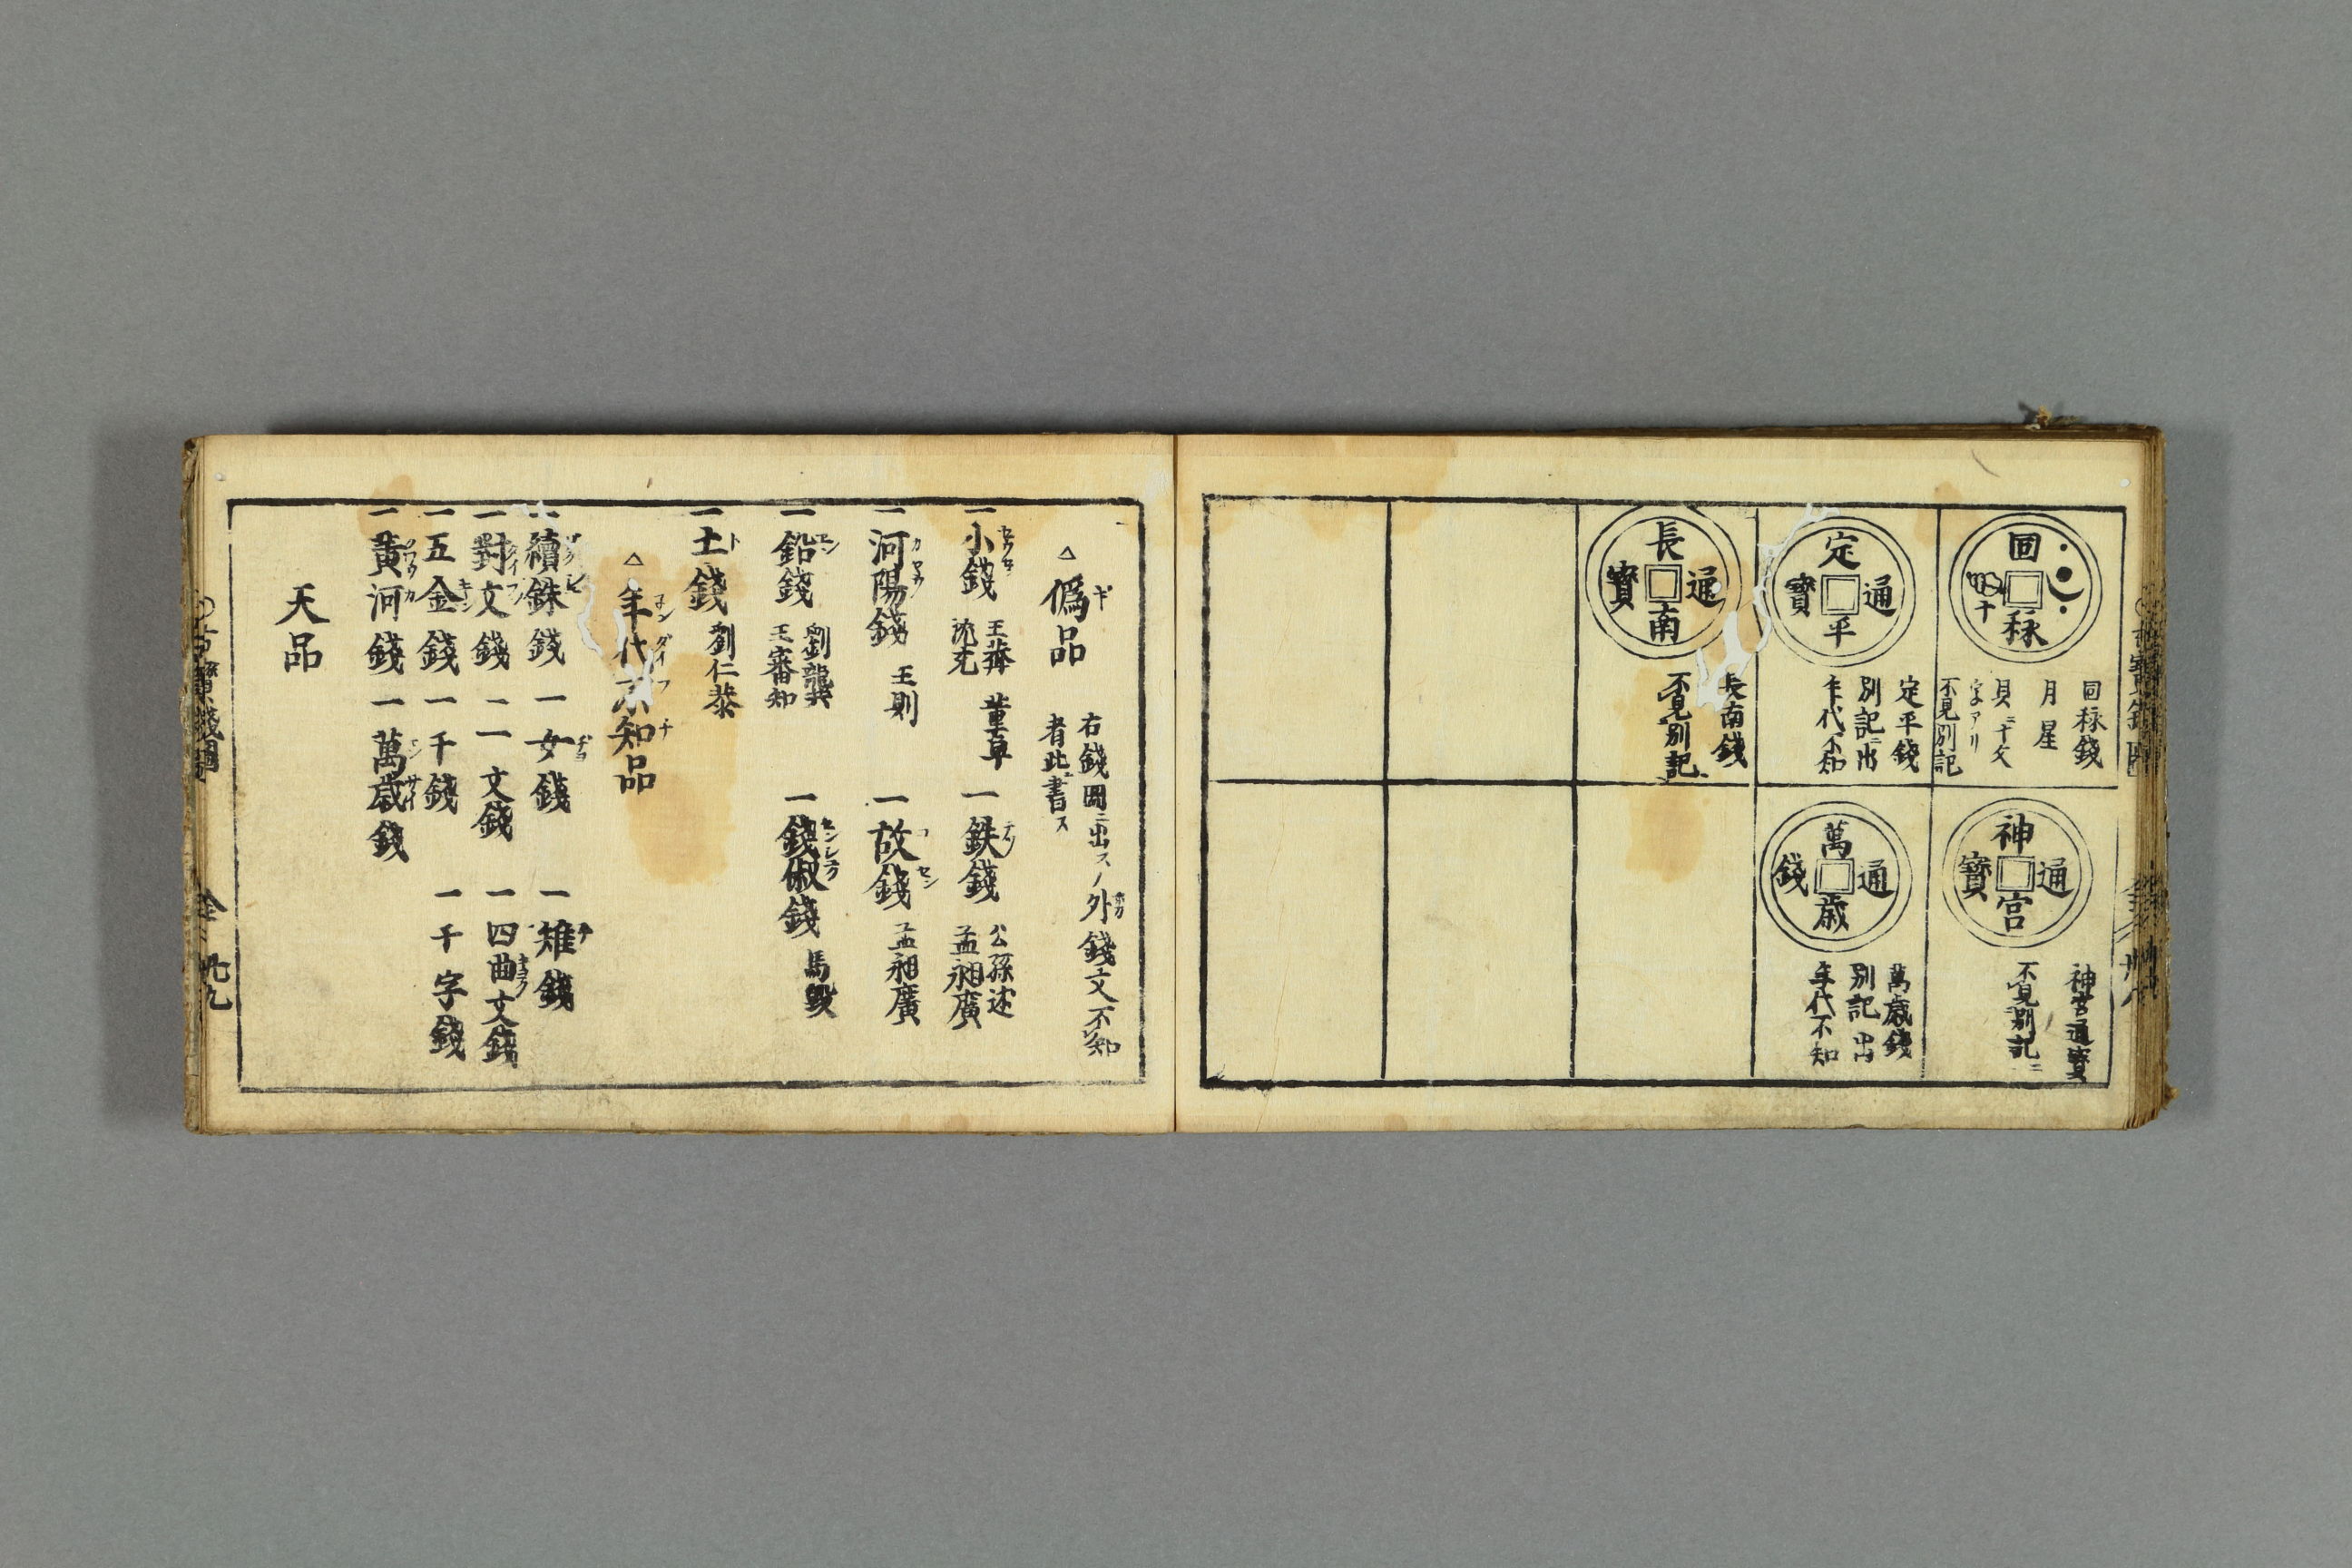 回秝
回秝錢
月星
貝ニ十文
字アリ
不見別記
神宮通寳
神宮通寳
不見別記ニ
定平通寳
定平錢
別記ニ出
年代不知
萬歳通錢
萬歳錢
別記出
年代不知
長南通寳
長南錢
不見別記
△偽品
右錢圖ニ出スノ外錢文不知
者此ニ書ス
一小錢 王莽 董卓 沈充
一鉄錢 公孫述 孟昶廣
一河陽錢 王則
一故錢 孟昶廣
一鉛錢 劉龑 王審知
一錢俶錢 馬殷
一土錢 劉仁恭
△年代不知品
一續銖錢 一女錢 一雉錢
一對文錢 一一文錢 一四曲文錢
一五金錢 一千錢 一千字錢
一黄河錢 一萬歳錢
天品